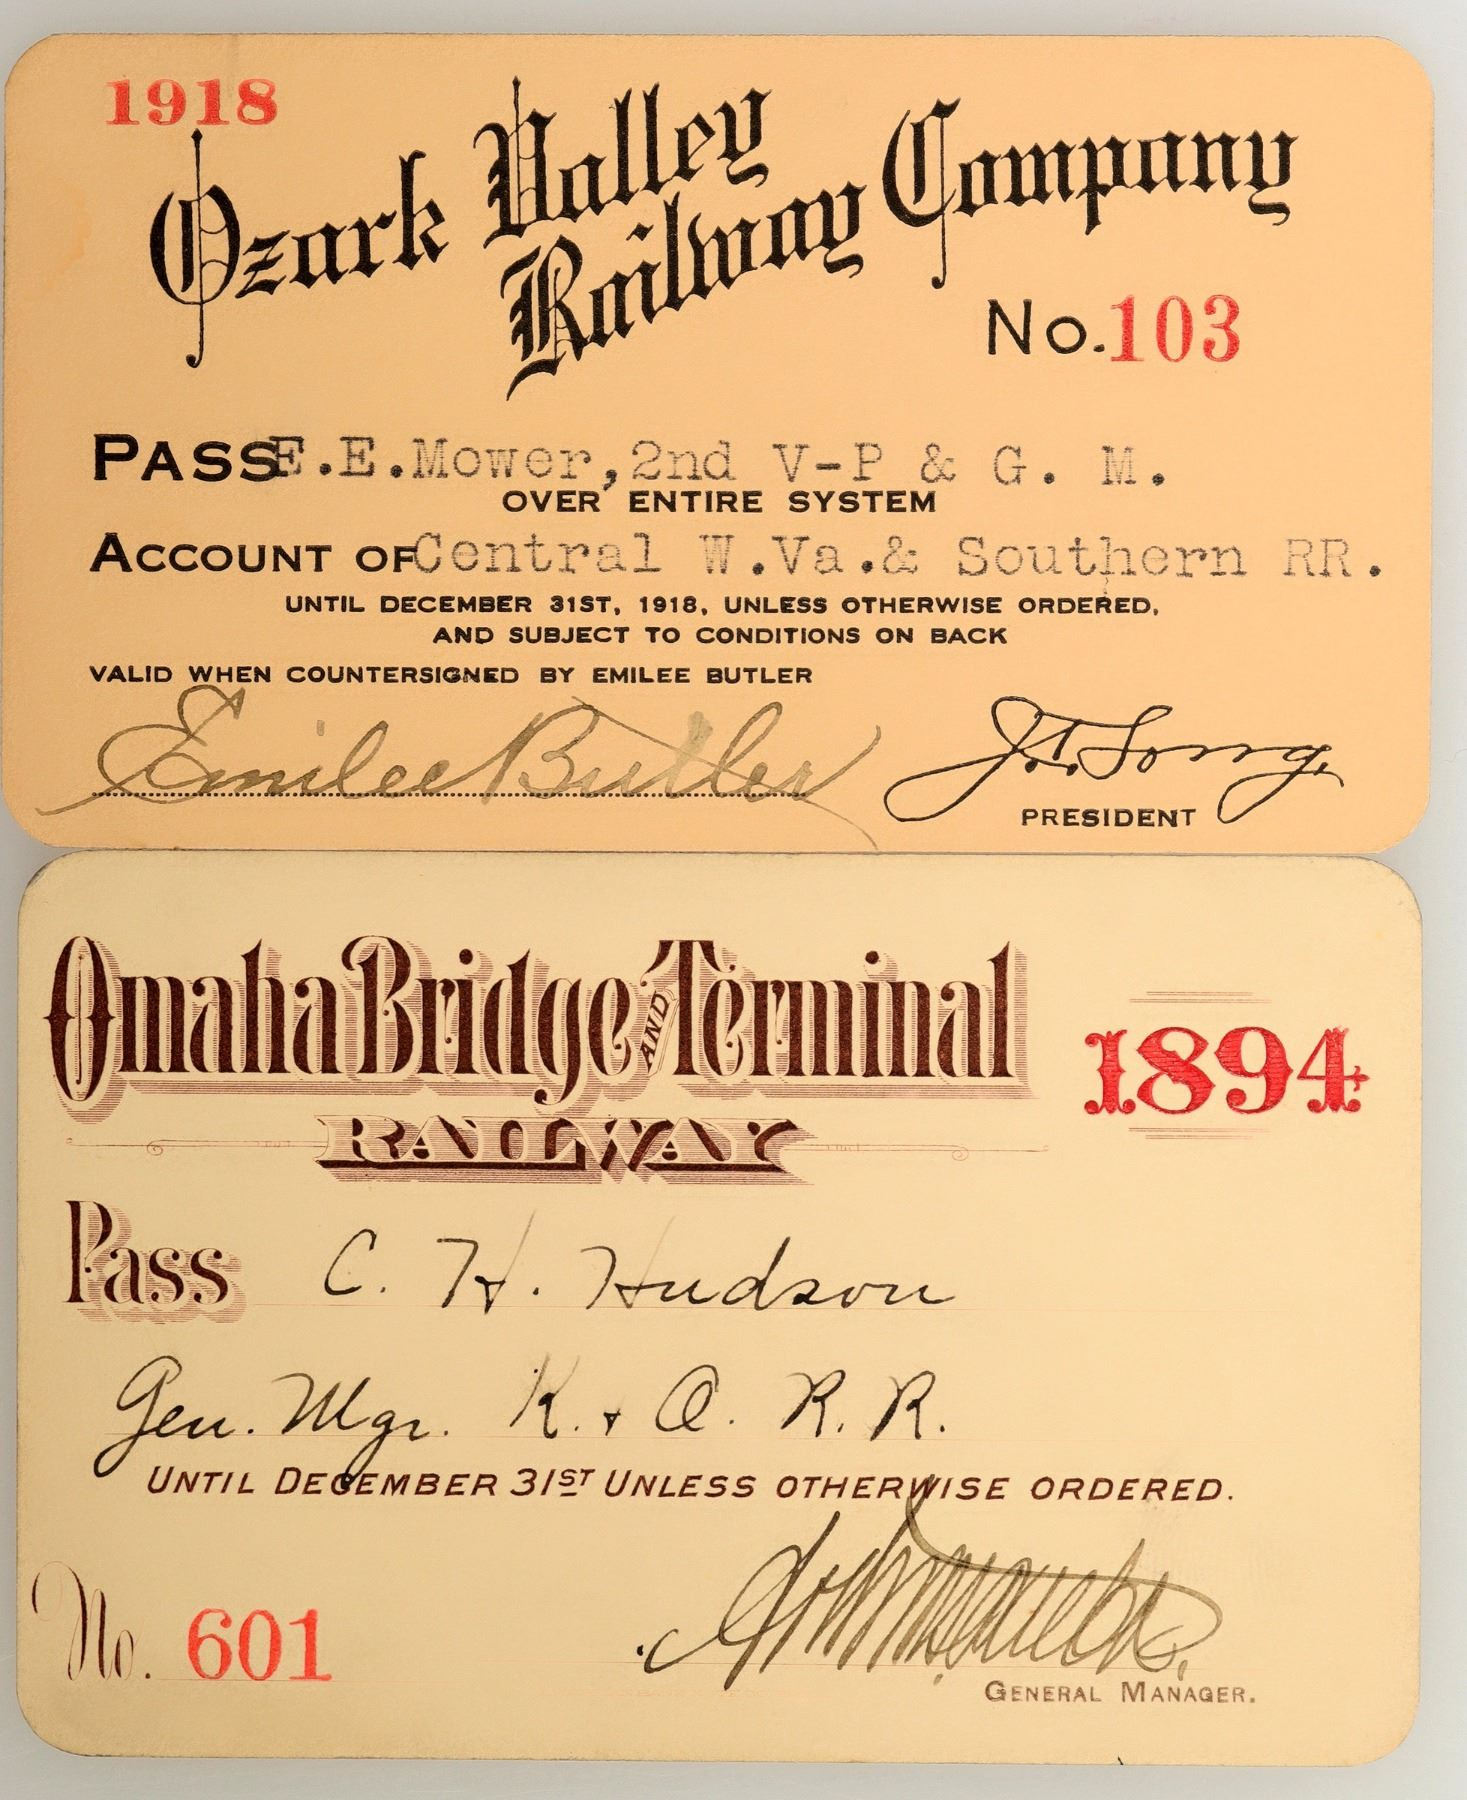 1918
Ozark Valley
Railway Company
No. 103
PASS E.E.Mower, 2nd V-P & G. M.
OVER ENTIRE SYSTEM
ACCOUNT OF Central W.Va.& Southern RR.
UNTIL DECEMBER 31ST, 1918, UNLESS OTHERWISE ORDERED,
AND SUBJECT TO CONDITIONS ON BACK
VALID WHEN COUNTERSIGNED BY EMILEE BUTLER
Emilee Butler
PRESIDENT
Omaha Bridge AND Terminal
RAILWAY
1894
Pass C. H. Hudson
Gen. Mgr. K. & O. R. R.
UNTIL DECEMBER 31ST UNLESS OTHERWISE ORDERED.
No. 601
GENERAL MANAGER.